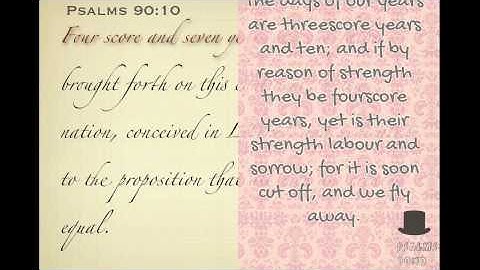 PSALMS 90:10
Four score and seven ye
brought forth on this c
nation, conceived in L
to the proposition tha
equal.
The days of our years
are threescore years
and ten; and if by
reason of strength
they be fourscore
years, yet is their
strength labour and
sorrow; for it is soon
cut off, and we fly
away.
PSALMS
90:10